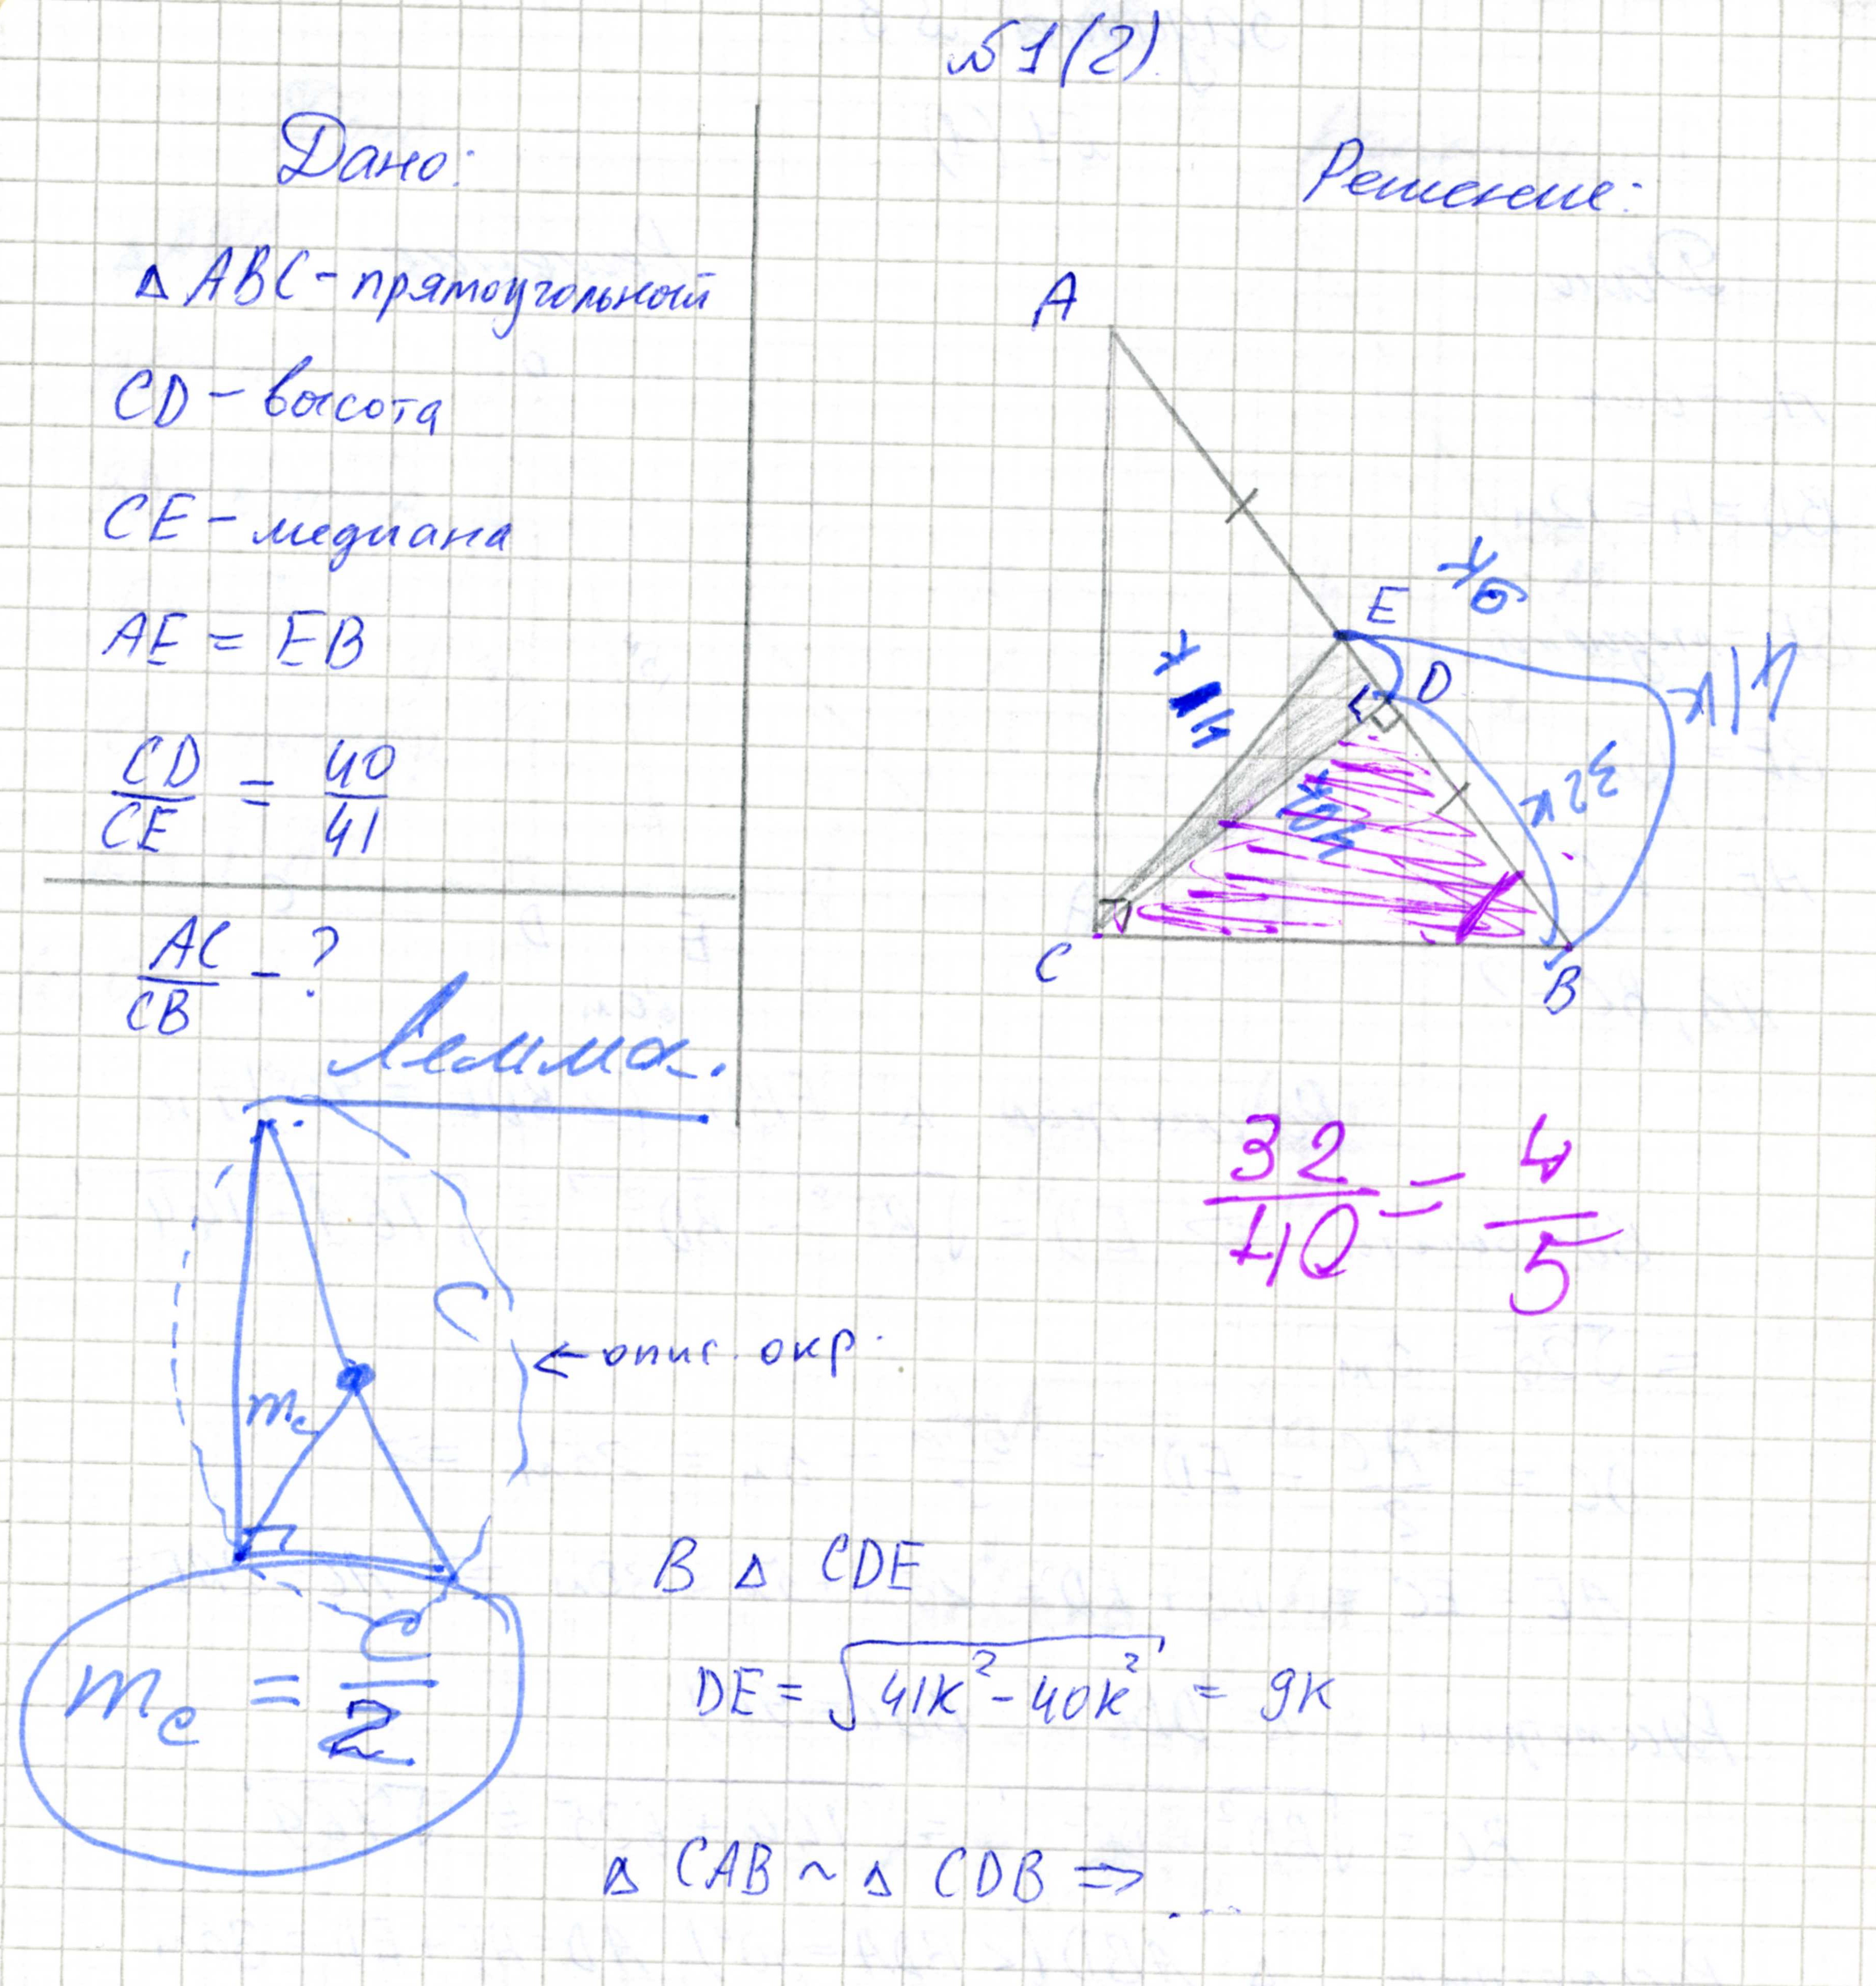 №1(2)
Дано:
Δ ABC - прямоугольный
CD - высота
CE - медиана
AE = EB
CD/CE = 40/41
AC/CB - ?
Решение:
A
E
9k
D
41k
41k
40k
32k
C
B
32/40 = 4/5
Лемма.
C
m_c
← опис. окр.
m_c = C/2
В Δ CDE
DE = √(41k² - 40k²) = 9k
Δ CAB ~ Δ CDB ⇒ ...